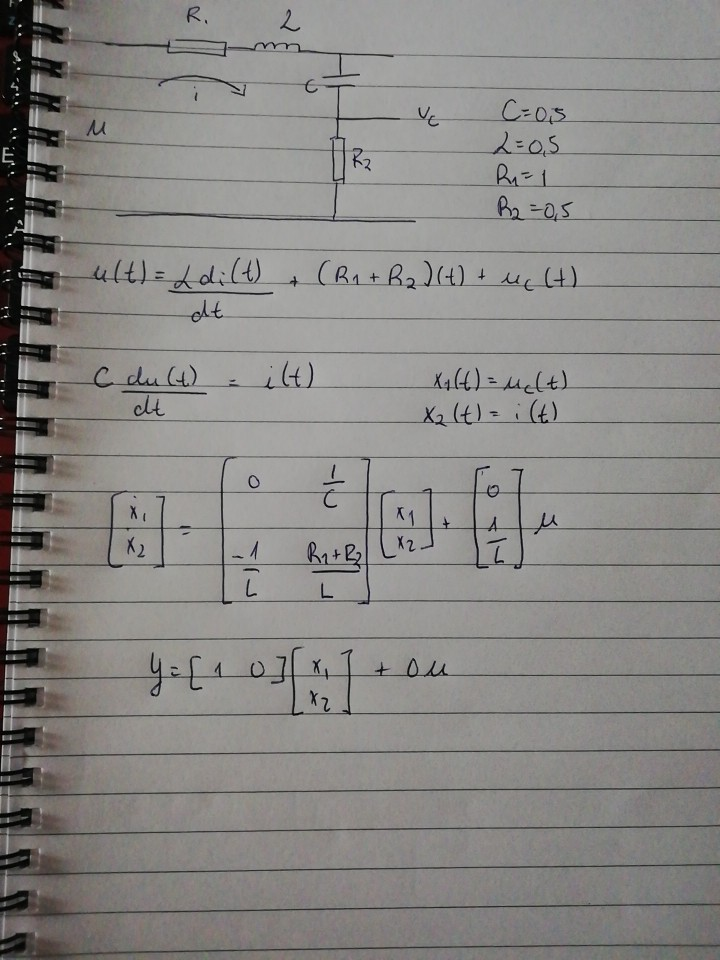 R1 L
C
i
Vc C=0,5
u L=0,5
R2 R1=1
R2=0,5
u(t)= L di(t)/dt + (R1+R2)(t) + uc(t)
C du(t)/dt = i(t) x1(t)=uc(t)
x2(t)= i(t)
[ẋ1; ẋ2] = [0 1/C; -1/L R1+R2/L] [x1; x2] + [0; 1/L] u
y=[1 0][x1; x2] + 0u